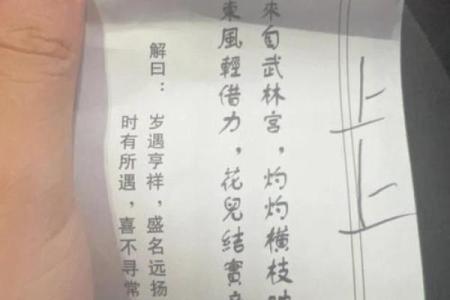 上上
來自武林宮，灼灼橫枝
東風輕借力，花兒結實
解曰：岁遇亨祥，盛名远扬
时有所遇，喜不寻常